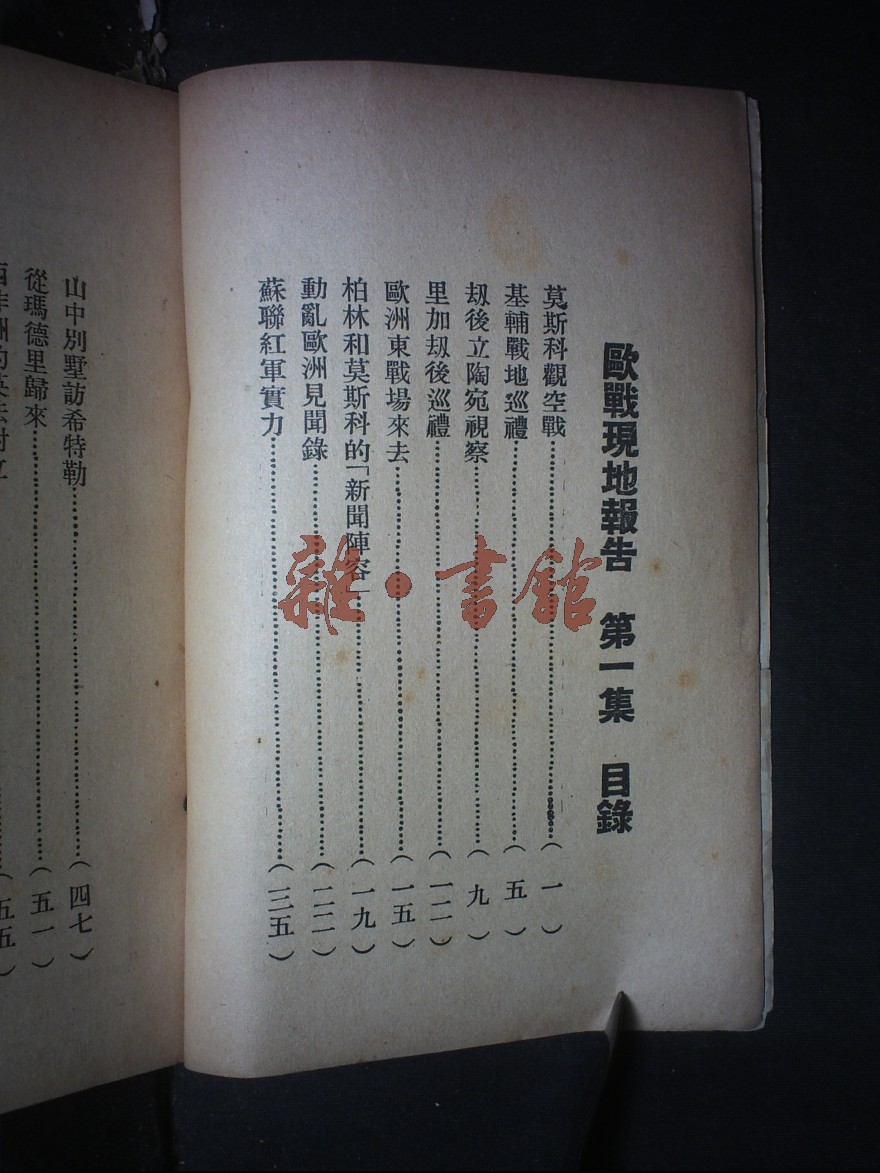 歐戰現地報告 第一集 目錄
莫斯科觀空戰……（一）
基輔戰地巡禮……（五）
刼後立陶宛視察……（九）
里加刼後巡禮……（一二）
歐洲東戰場來去……（一五）
柏林和莫斯科的「新聞陣容」……（一九）
動亂歐洲見聞錄……（二二）
蘇聯紅軍實力……（三五）
山中別墅訪希特勒……（四七）
從瑪德里歸來……（五一）
……（五五）
雜·書館